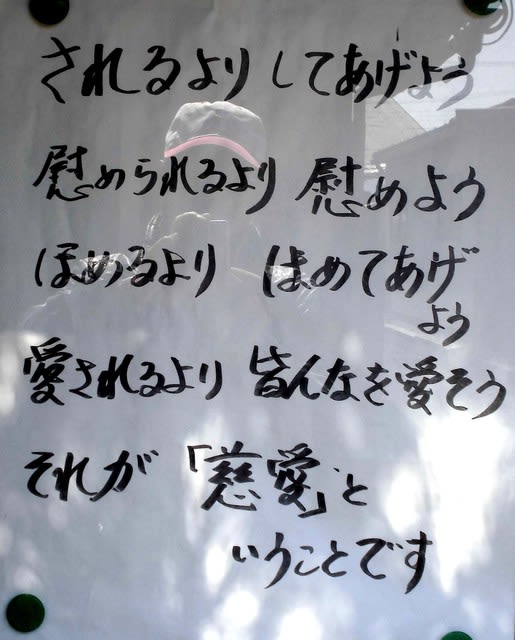 されるより してあげよう
慰められるより 慰めよう
ほめるより ほめてあげ
よう
愛されるより 皆んなを愛そう
それが 「慈愛」と
いうことです